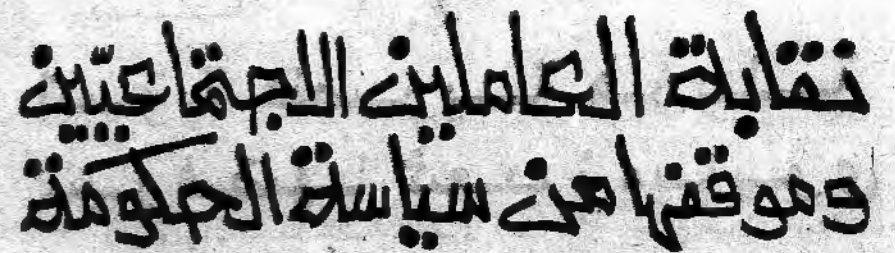 نقابة العاملين الاجتماعيّين
وموقفها من سياسة الحكومة